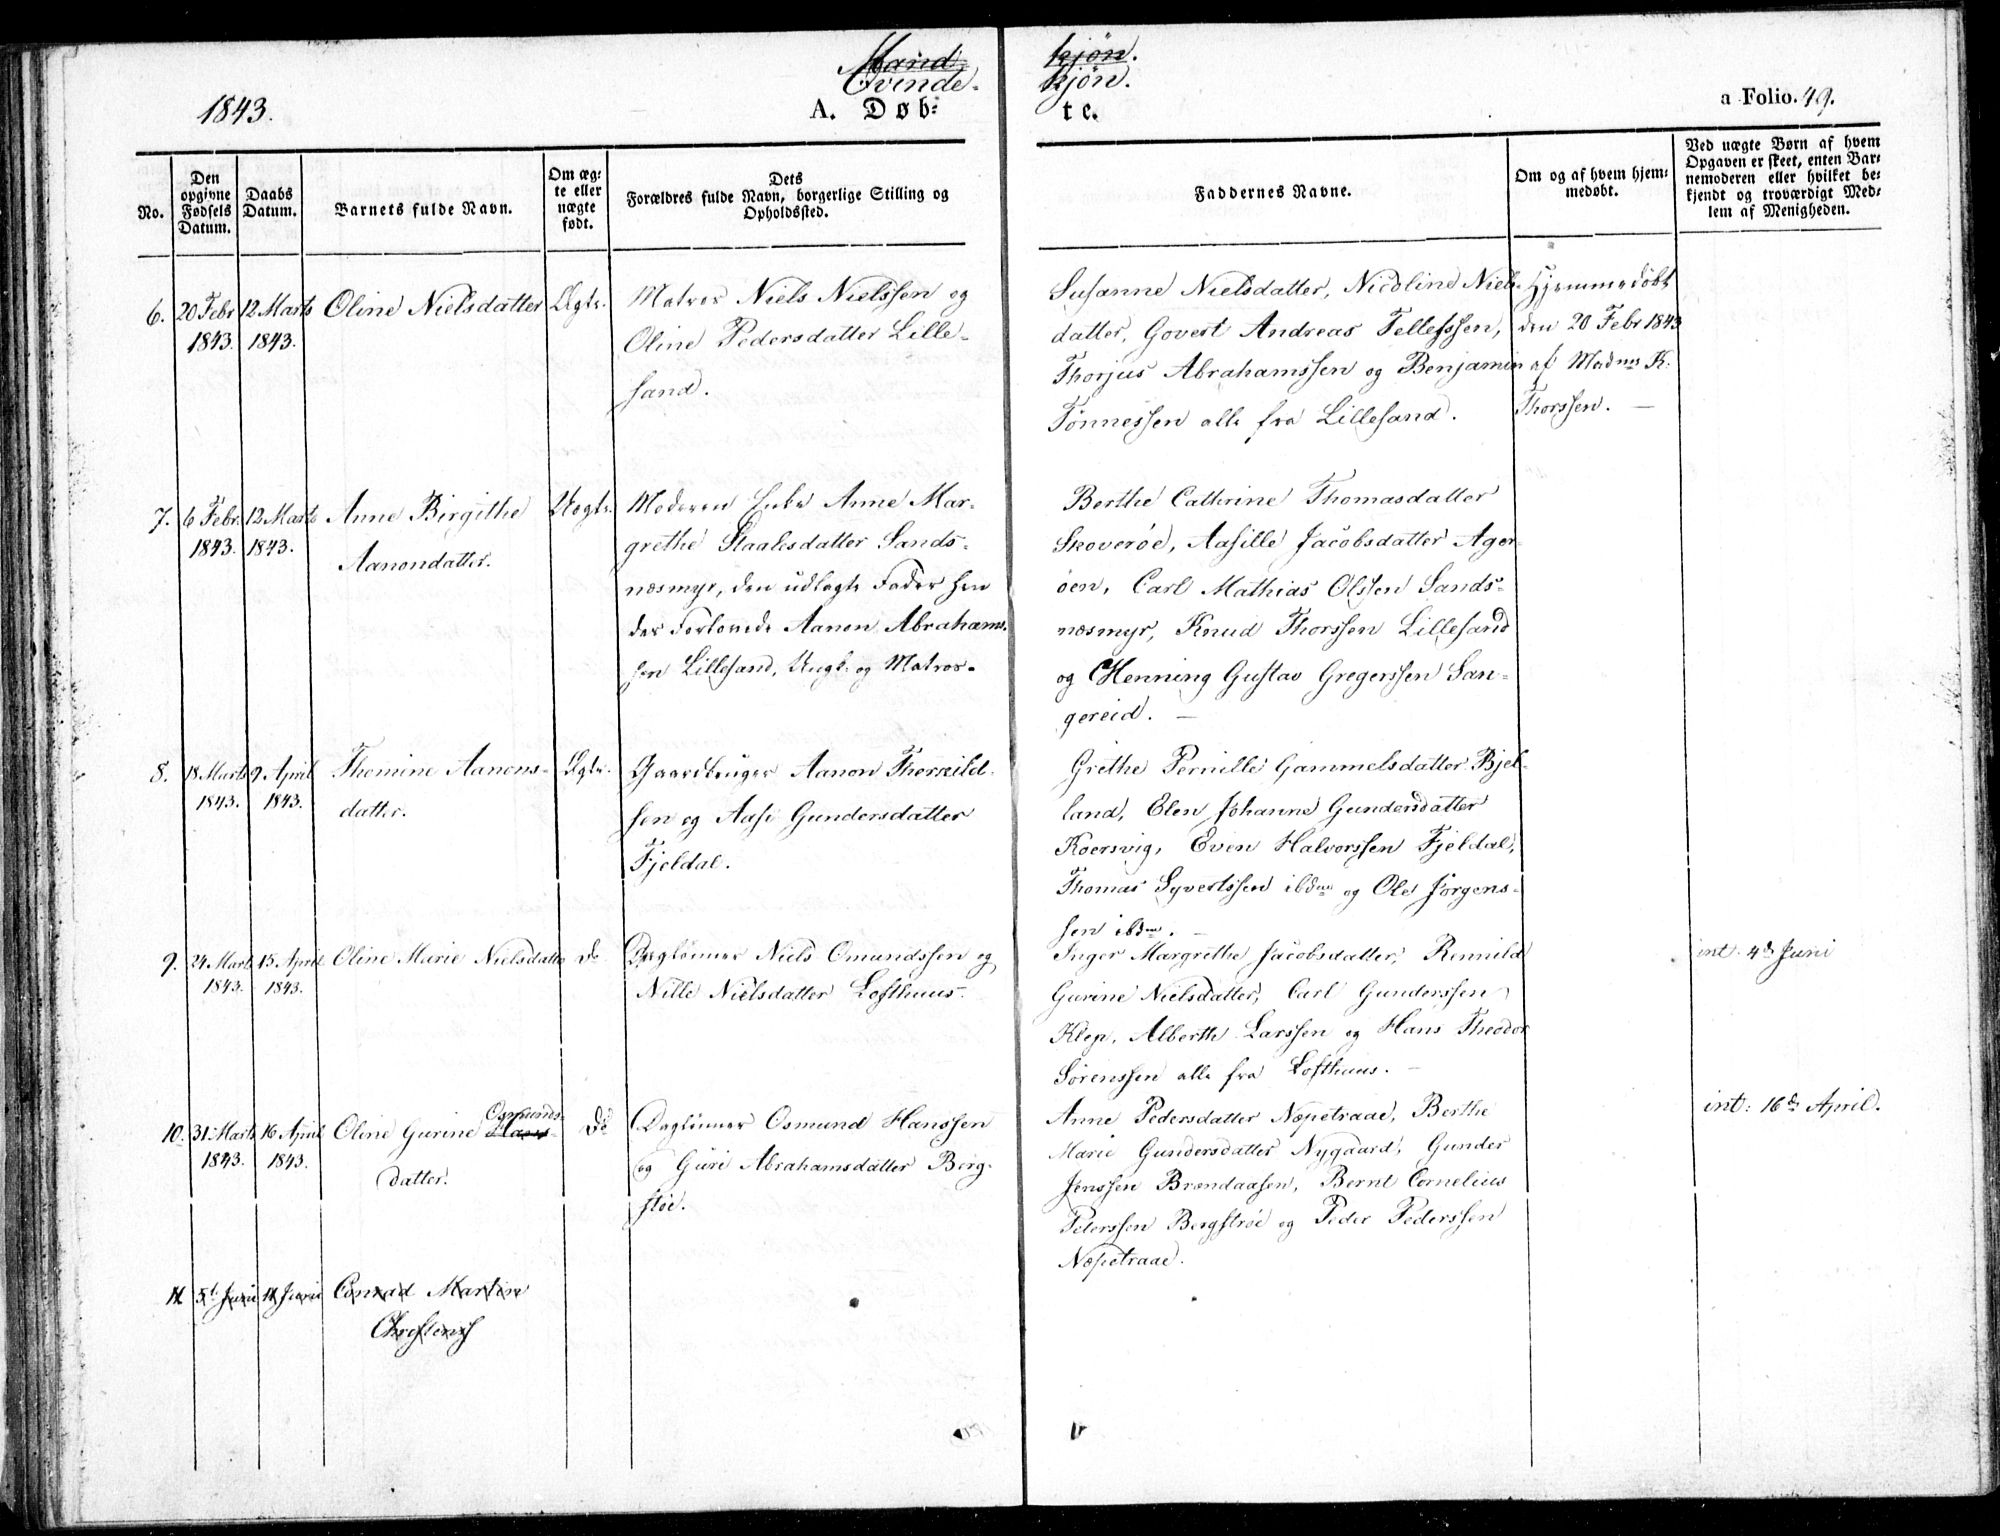 Mand-
kjøn.
Qvinde-
kjøn.
1843.
A. Døb-
te.
a Folio. 49.
No.
Den opgivne Fødsels Datum.
Daabs Datum.
Barnets fulde Navn.
Om ægte eller uægte født.
Dets
Forældres fulde Navn, borgerlige Stilling og
Opholdssted.
Faddernes Navne.
Om og af hvem hjem-
medøbt.
Ved uægte Børn af hvem
Opgaven er skeet, enten Bar-
nemoderen eller hvilket be-
kjendt og troværdigt Med-
lem af Menigheden.
6. 20 Febr 1843. 12 Marts 1843. Oline Nielsdatter Ægte.
Matros Niels Nielssen og
Oline Pedersdatter Lille-
sand.
Susanne Nielsdatter, Nicoline Niels-
datter, Govert Andreas Tellefssen,
Thorjus Abrahamssen og Benjamin
Tønnessen alle fra Lillesand.
Hjemmedøbt
den 20 Febr 1843
af Madme K.
Thorssen. —
7. 6 Febr. 1843. 12 Marts 1843. Anne Birgithe
Aanondatter.
Uægte.
Moderen Enke Anne Mar-
grethe Staalesdatter Sands-
næsmyr, den udlagte Fader hen
des Forlovede Aanon Abrahams-
sen Lillesand, Ungk. og Matros.
Berthe Cathrine Thomasdatter
Skoverøe, Aasille Jacobsdatter Ager-
øen, Carl Mathias Olsen Sands-
næsmyr, Knud Thorssen Lillesand
og Henning Gustav Gregerssen San-
gereid. —
8. 18 Marts 1843. 9 April 1843. Thomine Aanons-
datter.
Ægte.
Gaardbruger Aanon Therkild-
sen og Aase Gundersdatter
Fjeldal.
Grethe Pernille Gammelsdatter Bjel-
land, Elen Johanne Gundersdatter
Koersvig, Even Halvorssen Fjeldal,
Thomas Syvertssen ibdm og Ole Jørgens-
sen ibdm. —
9. 24 Marts 1843. 15 April 1843. Oline Marie Nielsdatter do
Daglønner Niels Omundssen og
Nille Nielsdatter Lofthuus.
Inger Margrethe Jacobsdatter, Rennild
Gurine Nielsdatter, Carl Gunderssen
Klep, Alberth Larssen og Hans Theodor
Sørenssen alle fra Lofthuus. —
int. 4de Juni
10. 31 Marts 1843. 16 April 1843. Oline Gurine Hans- Osmunds-
datter.
do
Daglønner Osmund Hanssen
og Guri Abrahamsdatter Berg-
støe.
Anne Pedersdatter Næpetraae, Berthe
Marie Gundersdatter Nygaard, Gunder
Jenssen Brændaasen, Bernt Cornelius
Peterssen Bergstøe og Peder Pederssen
Næpetraae.
int: 16de April.
11 5t Juni 11 Juni Conrad Martin